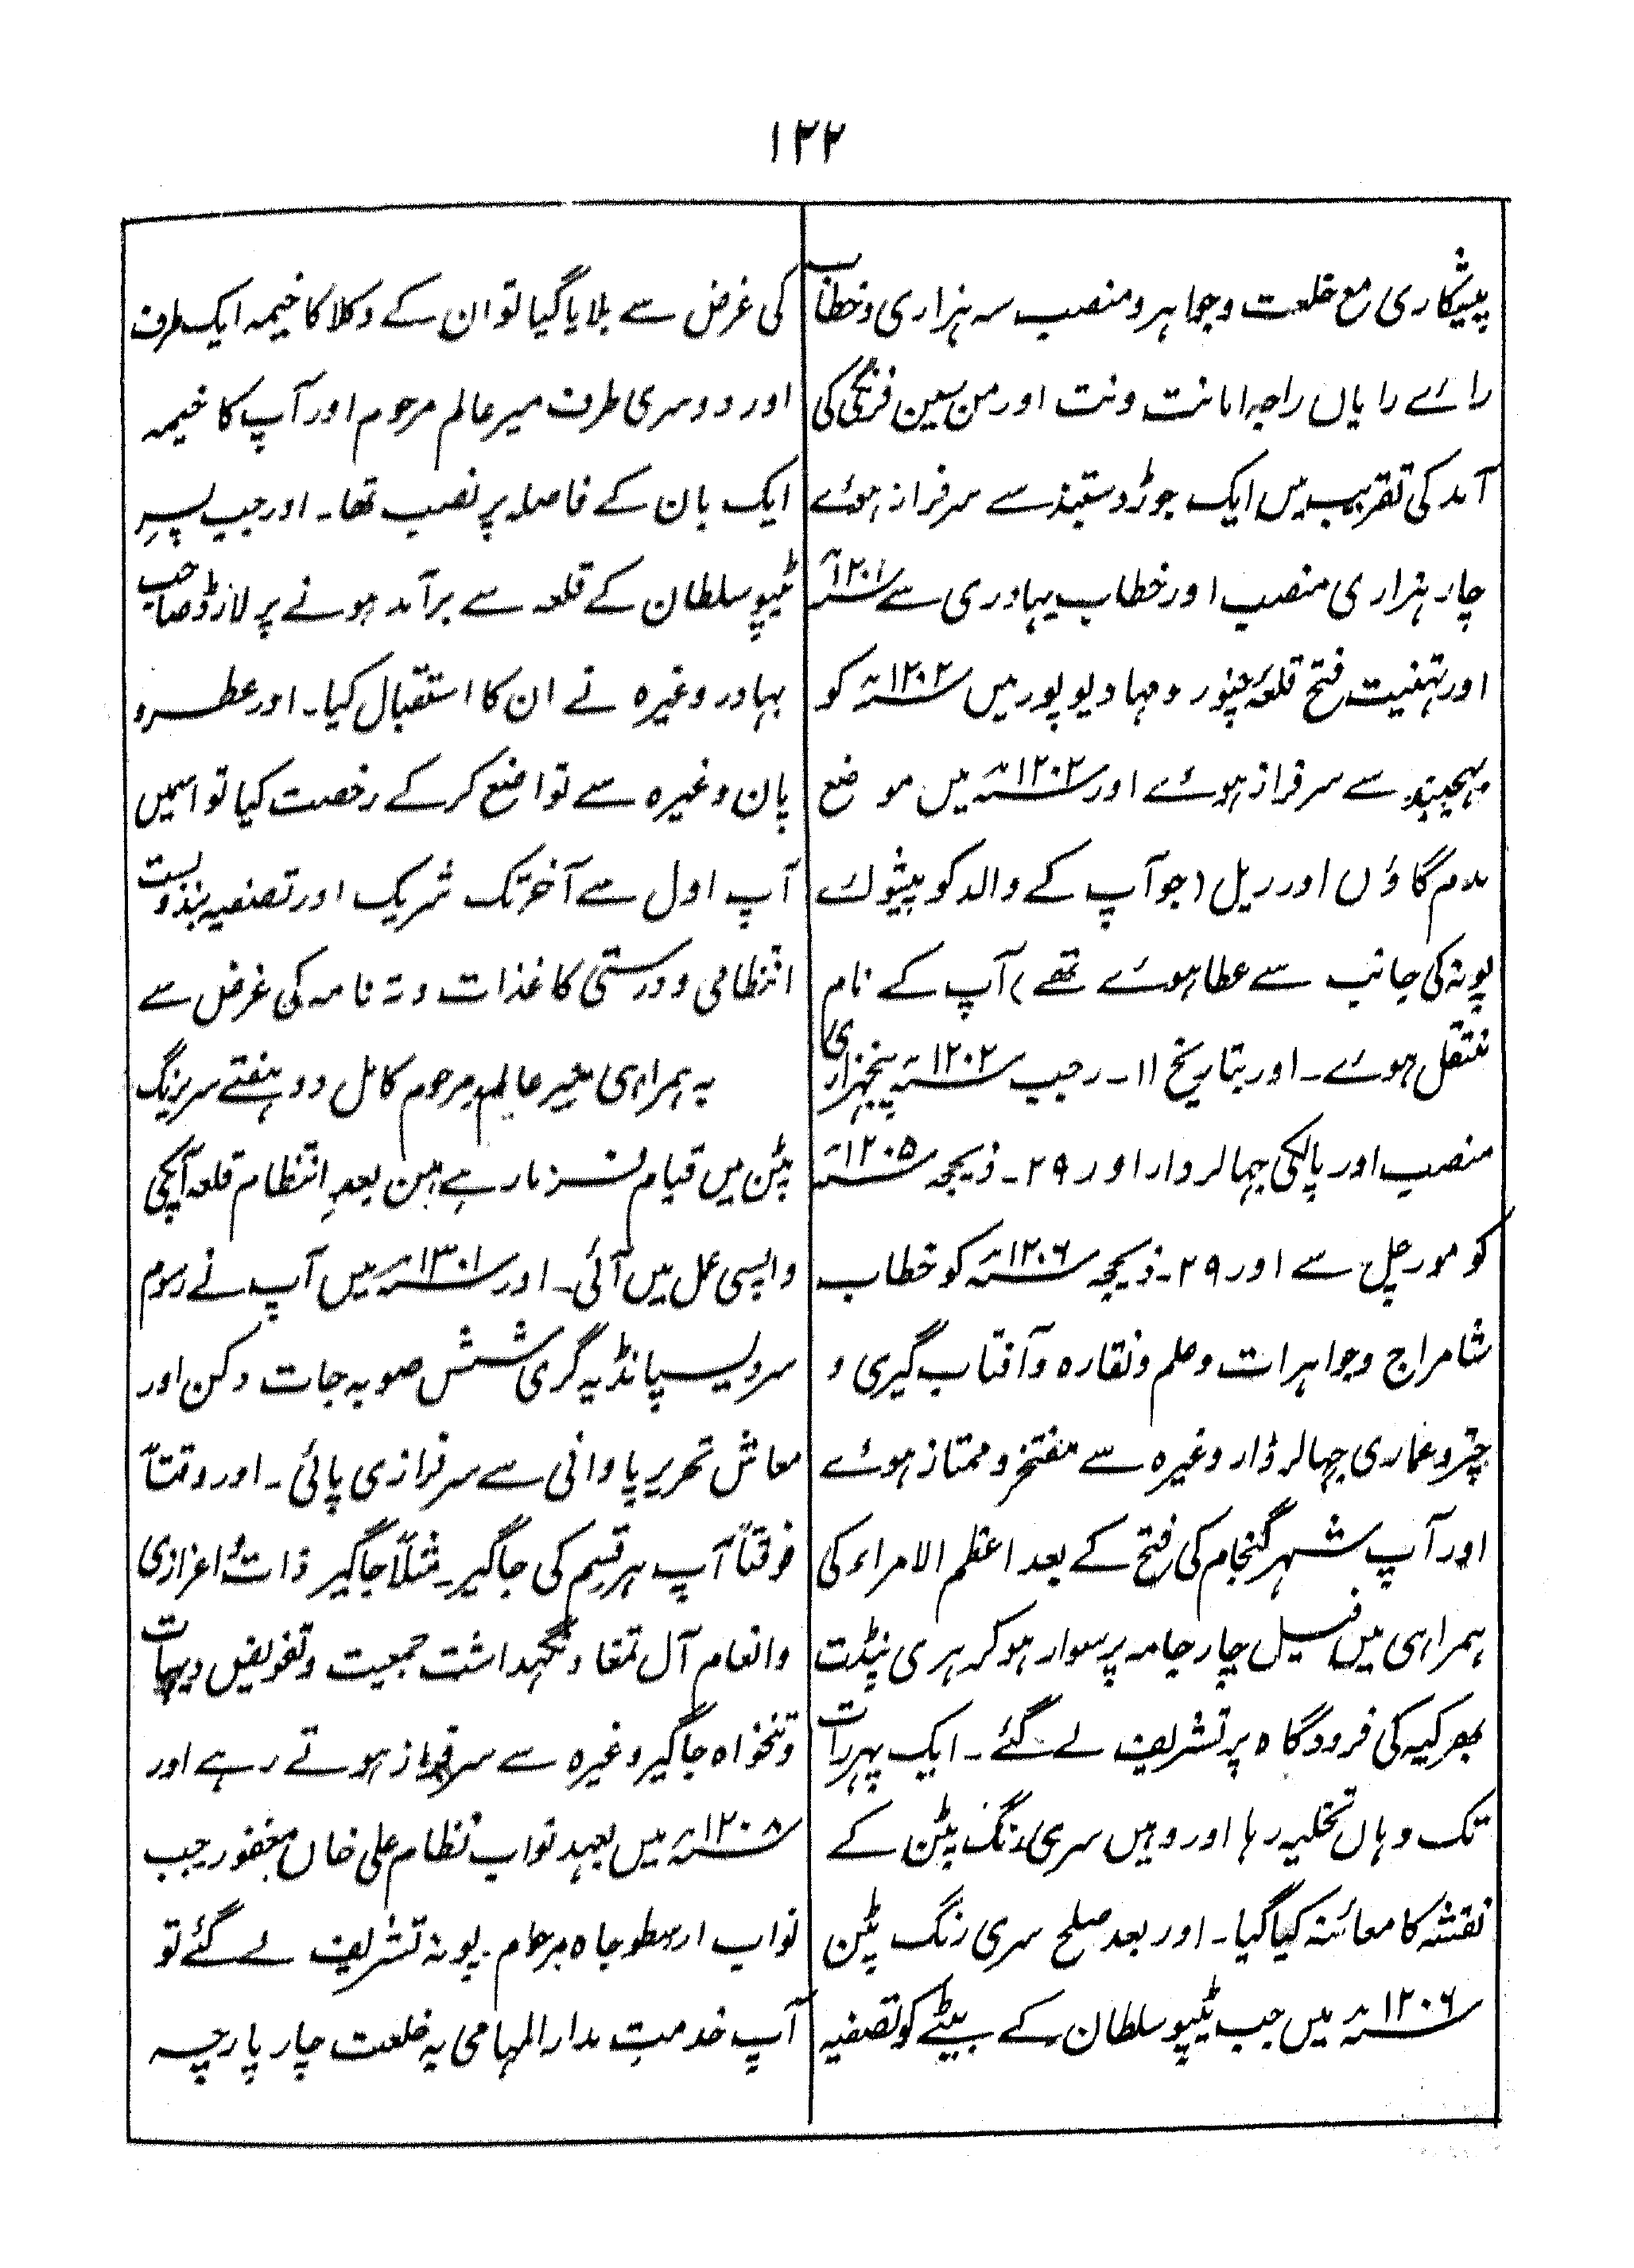 ۱۲۲
پیشکاری مع خلعت و جواہر و منصب سہ ہزاری و خطاب
رائے رایاں راجہ امانت ونت اور من سین فرنگی کی
آمد کی تقریب میں ایک جوڑ دستبند سے سرفراز ہوئے
چار ہزاری منصب اور خطاب بہادری سے ۱۲۰۱؁
اور تہنیت فتح قلعۂ چنور و مہادیو پور میں ۱۲۰۲؁ کو
بہجبند سے سرفراز ہوئے اور ۱۲۰۲؁ میں موضع
بدم گاؤں اور ریل (جو آپ کے والد کو پیشوائے
پونہ کی جانب سے عطا ہوئے تھے) آپ کے نام
منتقل ہوئے۔ اور بتاریخ ۱۱۔ رجب ۱۲۰۲؁ پنجہزاری
منصب اور پالکی جہالردار اور ۲۹۔ ذیحجہ ۱۲۰۵؁
کو مورچل سے اور ۲۹۔ ذیحجہ ۱۲۰۶؁ کو خطاب
شامراج و جواہرات و علم و نقارہ و آفتاب گیری و
چتر و عماری جہالردار وغیرہ سے مفتخر و ممتاز ہوئے
اور آپ شہر گنجام کی فتح کے بعد اعظم الامراء کی
ہمراہی میں فیل چار جامہ پر سوار ہو کر ہری پنڈت
بھرکیہ کی فرودگاہ پر تشریف لے گئے۔ ایک پہر رات
تک وہاں تخلیہ رہا اور وہیں سری رنگ پٹن کے
نقشہ کا معائنہ کیا گیا۔ اور بعد صلح سری رنگ پٹن
۱۲۰۶؁ میں جب ٹیپو سلطان کے بیٹے کو تصفیہ
کی غرض سے بلایا گیا تو ان کے وکلا کا خیمہ ایک طرف
اور دوسری طرف میر عالم مرحوم اور آپ کا خیمہ
ایک بان کے فاصلہ پر نصب تھا۔ اور جب پسرِ
ٹیپو سلطان کے قلعہ سے برآمد ہونے پر لارڈ صاحب
بہادر وغیرہ نے ان کا استقبال کیا۔ اور عطر و
پان وغیرہ سے تواضع کر کے رخصت کیا تو اسمیں
آپ اول سے آخر تک شریک اور تصفیہ بندوبست
انتظامی و درستی کاغذات و تہ نامہ کی غرض سے
بہ ہمراہی میر عالم مرحوم کامل دو ہفتے سریرنگ
پٹن میں قیام فرما رہے ہیں بعدِ انتظام قلعہ آپکی
واپسی عمل میں آئی۔ اور ۱۳۰۱؁ میں آپ نے رسوم
سردیسپانڈیہ گری شش صوبہ جات دکن اور
معاش تحریر پاوانی سے سرفرازی پائی۔ اور وقتاً
فوقتاً آپ ہر قسم کی جاگیر۔ مثلاً جاگیر ذات و اعزازی
وانعام آل تمغا و نگہداشت جمعیت و تفویض دیہات
و تنخواہ جاگیر وغیرہ سے سرفراز ہوتے رہے اور
۱۲۰۸؁ میں بعہد نواب نظام علی خاں مغفور جب
نواب ارسطو جاہ مرحوم۔ پونہ تشریف لے گئے تو
آپ خدمتِ مدارالمہامی بہ خلعت چار پارچہ